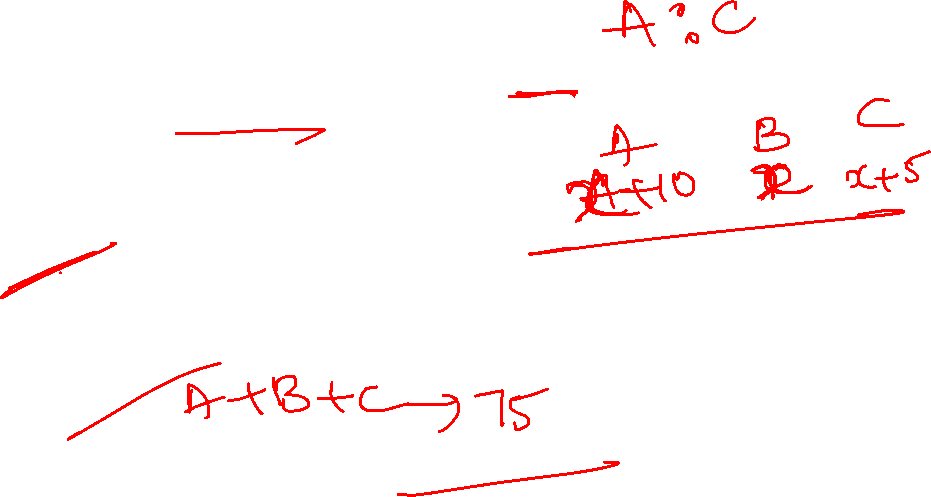 A : C
A B C
x+10 x x+5
A+B+C → 75